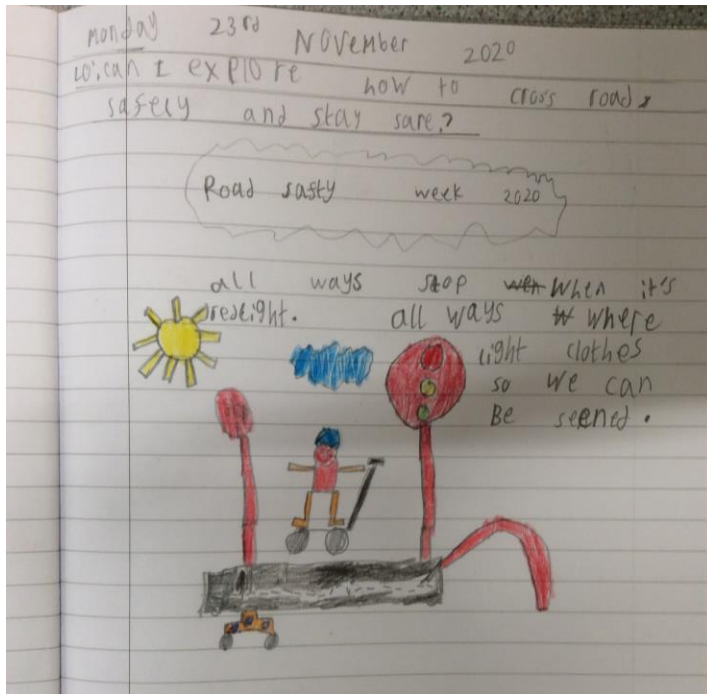 Monday 23rd November 2020
LO: can I explore how to cross roads
safely and stay safe?
Road safty week 2020
all ways stop wen When it's
redlight. all ways w where
light clothes
so we can
Be seened.